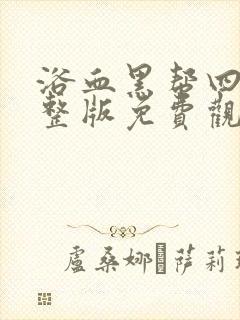 浴血黑帮四
整版免費觀
盧桑娜 萨莉